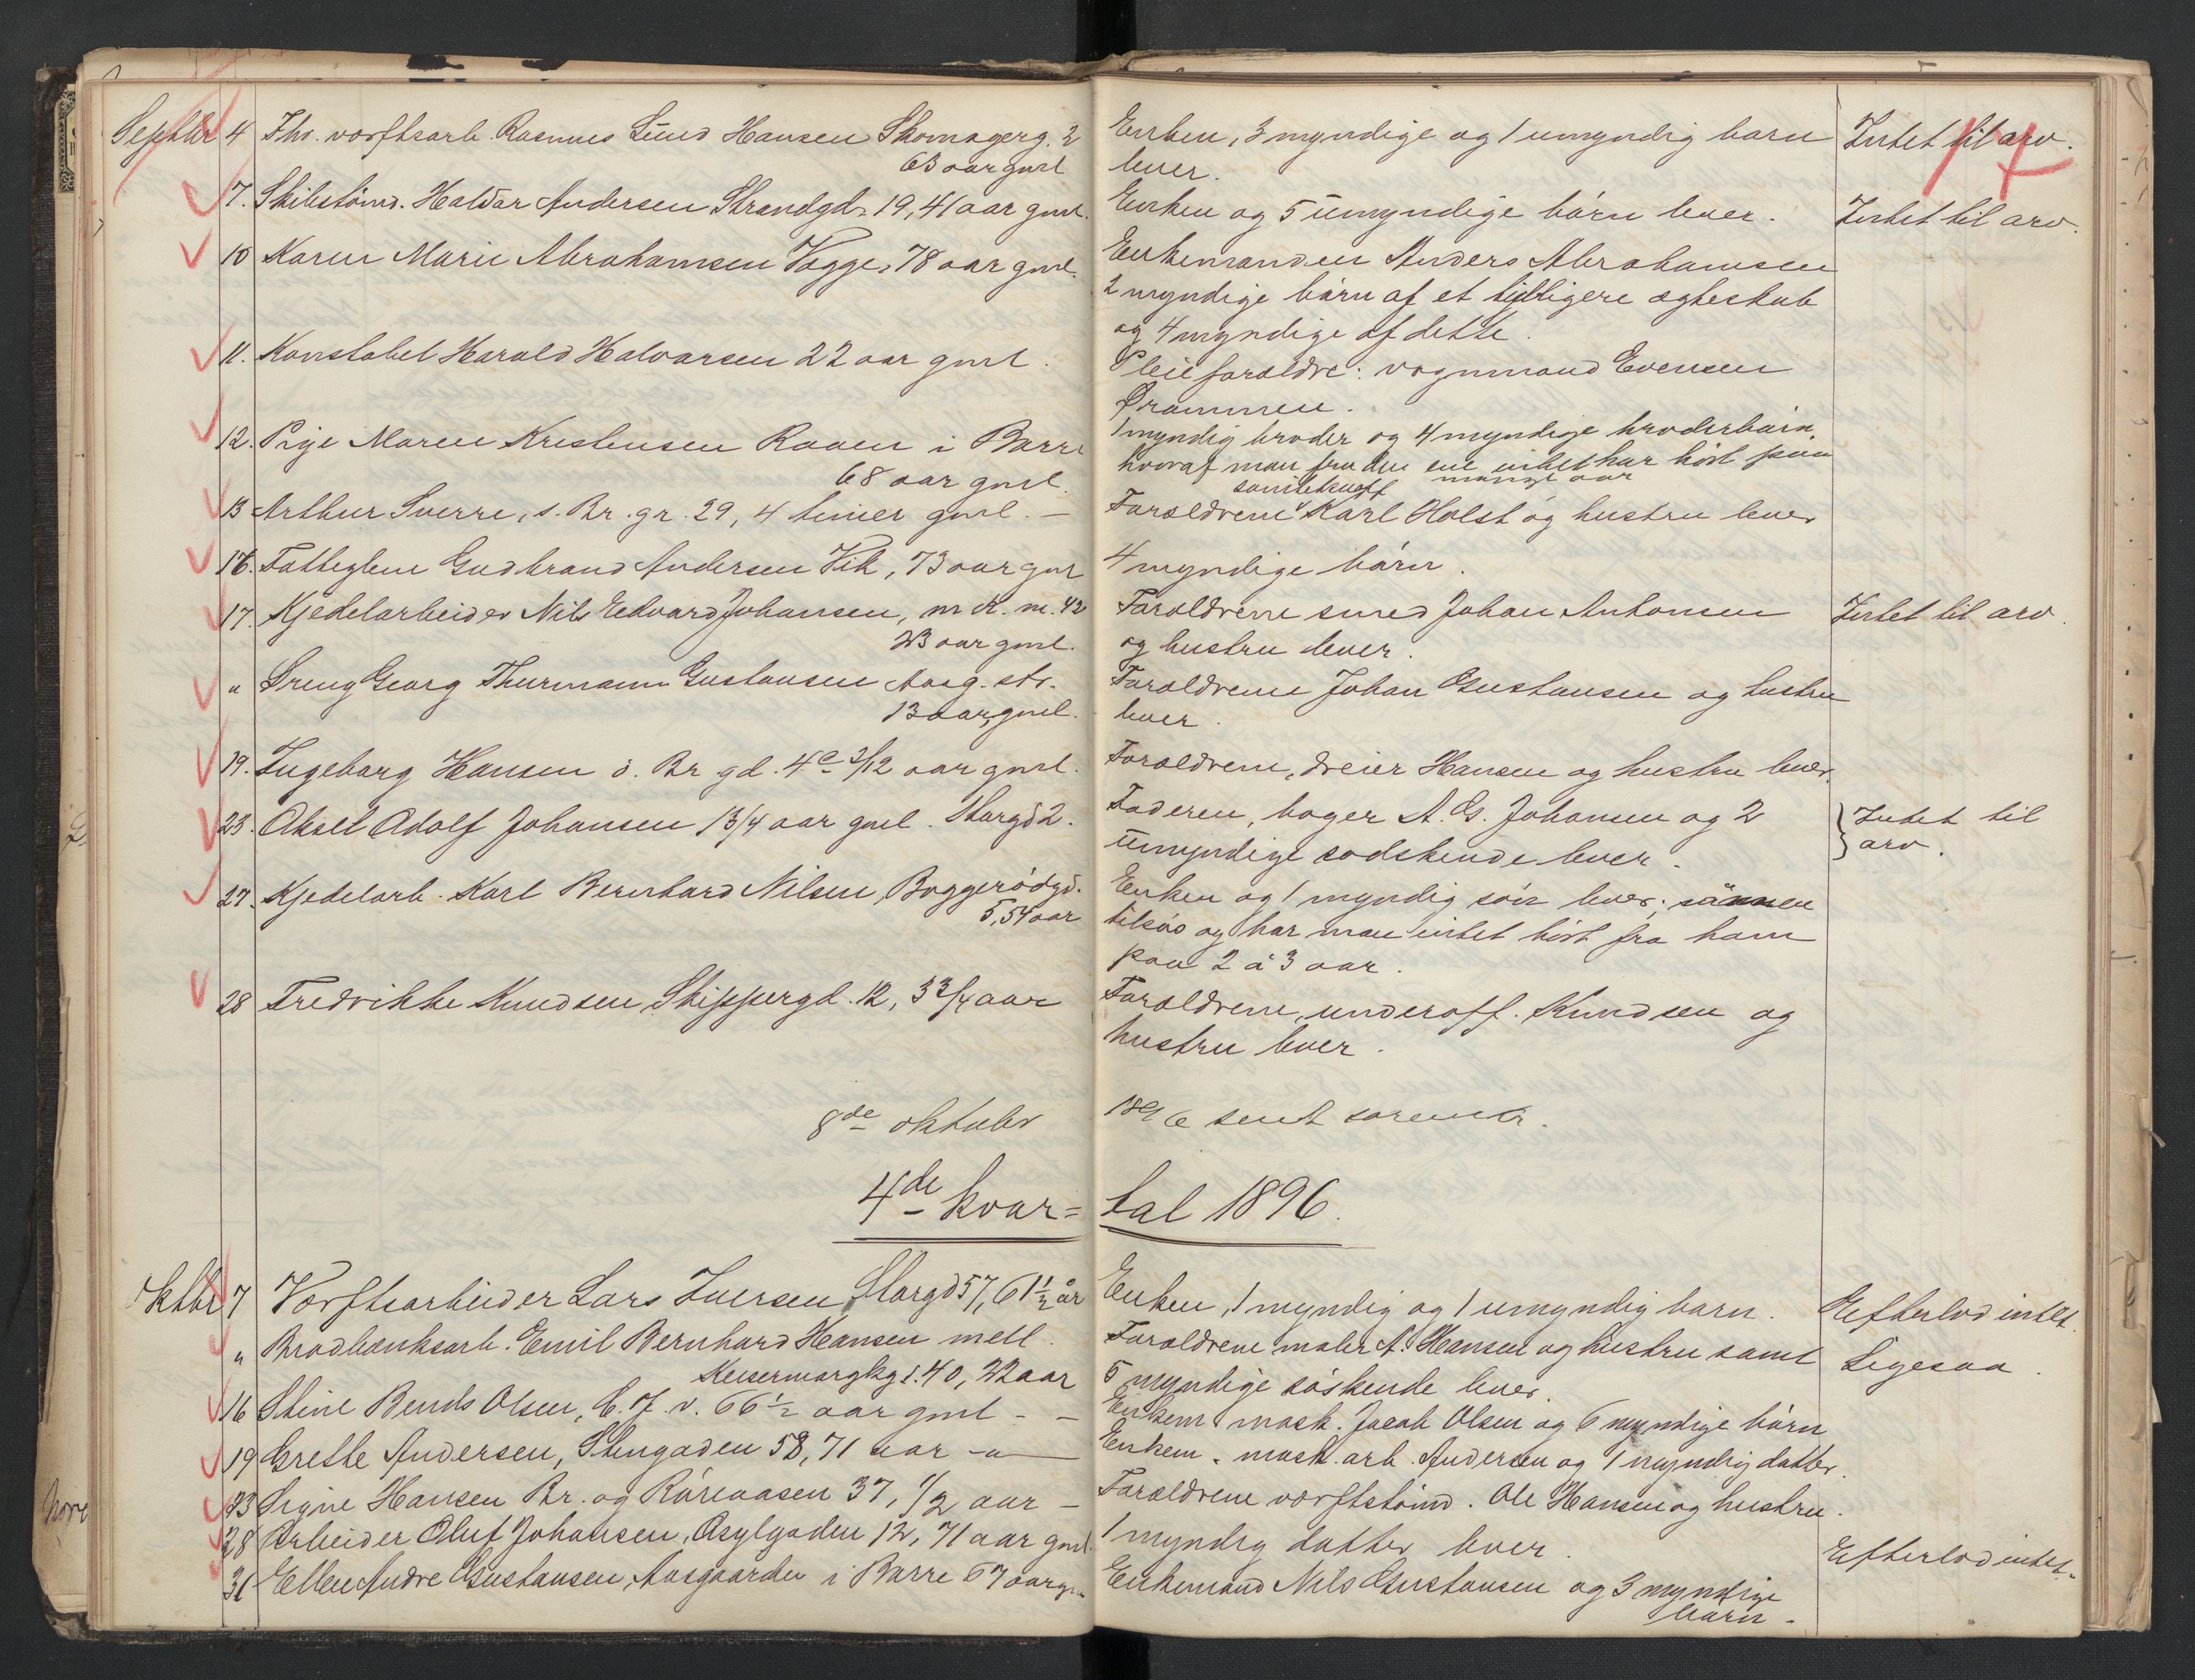 Septbr 4 Fhv. værftsarb. Rasmus Lund Hansen Skomagerg. 2
63 aar gml
Enken, 3 myndige og 1 umyndig barn
lever.
Intet til arv.
7. Skibstømd. Haldor Andersen Strandgd. 19, 41 aar gml.
Enken og 5 umyndige börn lever.
Intet til arv.
10 Karen Marie Abrahamsen Vagge, 78 aar gml.
Enkemanden Anders Abrahamsen
2 myndige börn af et tidligere ægteskab
og 4 myndige af dette.
11. Konstabel Harald Halvorsen 22 aar gml.
Pleieforældre: vognmand Evensen
Drammen.
12. Pige Maren Kristensen Raaen i Borre
68 aar gml.
1 myndig broder og 4 myndige broderbörn,
hvoraf man fra den ene intet har hört paa
mange aar
13 Arthur Sverre, s. Br. gr. 29, 4 timer gml. —
Forældrene Karl Holst og hustru lever
16. Fattiglem Gudbrand Andersen Vik, 73 aar gml
4 myndige börn.
17. Kjedelarbeider Nils Edvard Johansen, m. k. m. 42
23 aar gml.
Forældrene smed Johan Antonsen
og hustru lever.
Intet til arv.
" Dreng Georg Thurmann Gustavsen Aasg. str.
13 aar gml.
Forældrene Johan Gustavsen og hustru
lever.
19. Ingeborg Hansen ö. Br. gd. 4c 3/12 aar gml.
Forældrene, dreier Hansen og hustru lever.
23. Aksel Adolf Johansen 1 3/4 aar gml. Storgd 2.
Faderen, bager A. G. Johansen og 2
umyndige sødskende lever.
Intet til
arv.
27. Kjedelarb. Karl Bernhard Nilsen, Baggerödgd.
5, 54 aar
Enken og 1 myndig sön lever; sönnen
tilsøs og har man intet hört fra ham
paa 2 à 3 aar.
28 Fredrikke Knudsen, Skippergd. 12, 3 3/4 aar
Forældrene, underoff. Knudsen og
hustru lever.
8de oktober 1896 sendt sorenskr.
4de kvar= tal 1896.
Oktbr 7 Værftsarbeider Lars Iversen, Storgd 57, 61 1/2 år
Enken, 1 myndig og 1 umyndig barn.
Efterlod intet.
" Brodbænksarb. Emil Bernhard Hansen mell.
Keisermarkg i. 40, 22 aar
Forældrene maler A. Hansen og hustru samt
5 myndige söskende lever.
Ligesaa.
16 Stine Bends Olsen, C. J. v. 66 1/2 aar gml - -
Enkem. mask. Jacob Olsen og 6 myndige börn
19 Grethe Andersen, Stengaden 58, 71 aar - " -
Enkem. mask. arb. Andersen og 1 myndig datter.
23 Signe Hansen Br. og Röreaasen 37, 1/2 aar -
Forældrene værftstömd. Ole Hansen og hustru.
28 Arbeider Oluf Johansen, Asylgaden 12, 71 aar gml.
1 myndig datter lever.
Efterlod intet.
31 Ellen Andre Gustavsen, Aasgaarden i Borre 67 aar gm
Enkemand Nils Gustavsen og 3 myndige
börn -